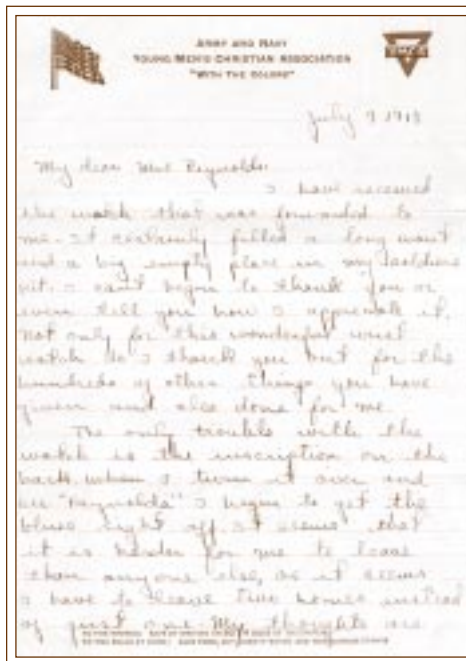 ARMY AND NAVY
YOUNG MEN'S CHRISTIAN ASSOCIATION
"WITH THE COLORS"
July 9 1918
My dear Mrs Reynolds:
I have received
the watch that was forwarded to
me. It certainly filled a long want
and a big empty place in my soldiers
kit. I can't begin to thank you or
even tell you how I appreciate it.
Not only for this wonderful wrist
watch do I thank you but for the
hundreds of other things you have
given and also done for me.
The only trouble with the
watch is the inscription on the
back. When I turn it over and
see "Reynolds" I begin to get the
blues right off. It seems that
it is harder for me to leave
than anyone else, as it seems
I have to leave two homes instead
of just one. My thoughts are